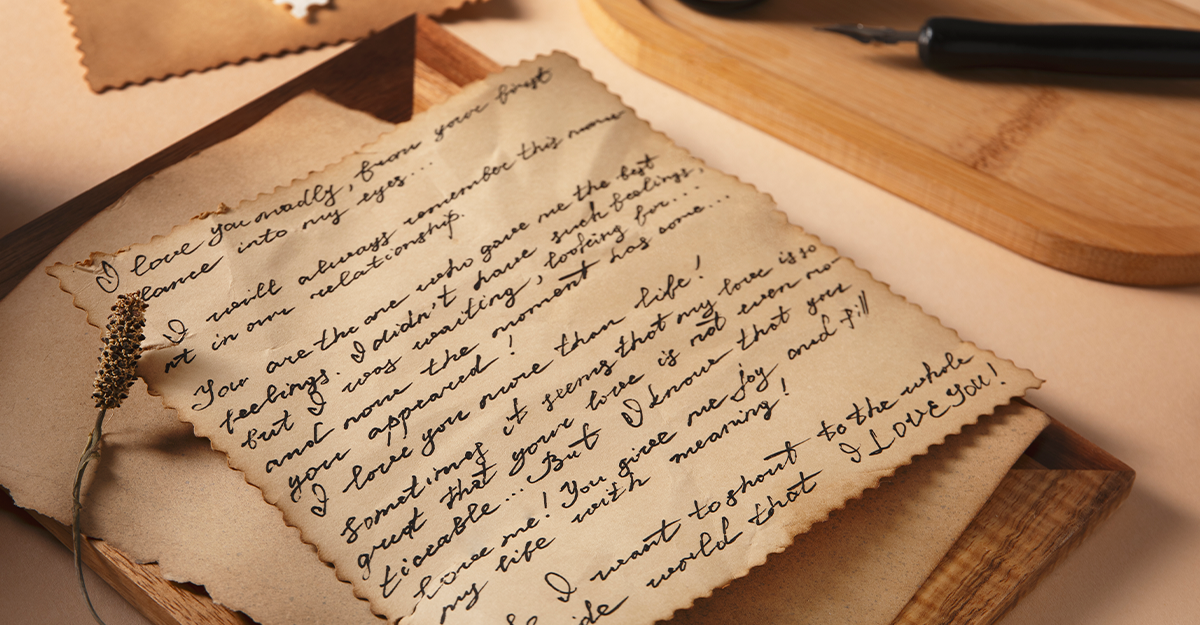 I love you madly, from your first
lance into my eyes...
I will always remember this mom
nt in our relationship.
You are the one who gave me the best
feelings. I didn't have such feelings,
but I was waiting, looking for...
and now the moment has come...
you appeared!
I love you more than life!
Sometimes it seems that my love is so
great that your love is not even no-
ticeable... But I know that you
love me! You give me joy and fill
my life with meaning!
I want to shout to the whole
ide world that I LOVE YOU!